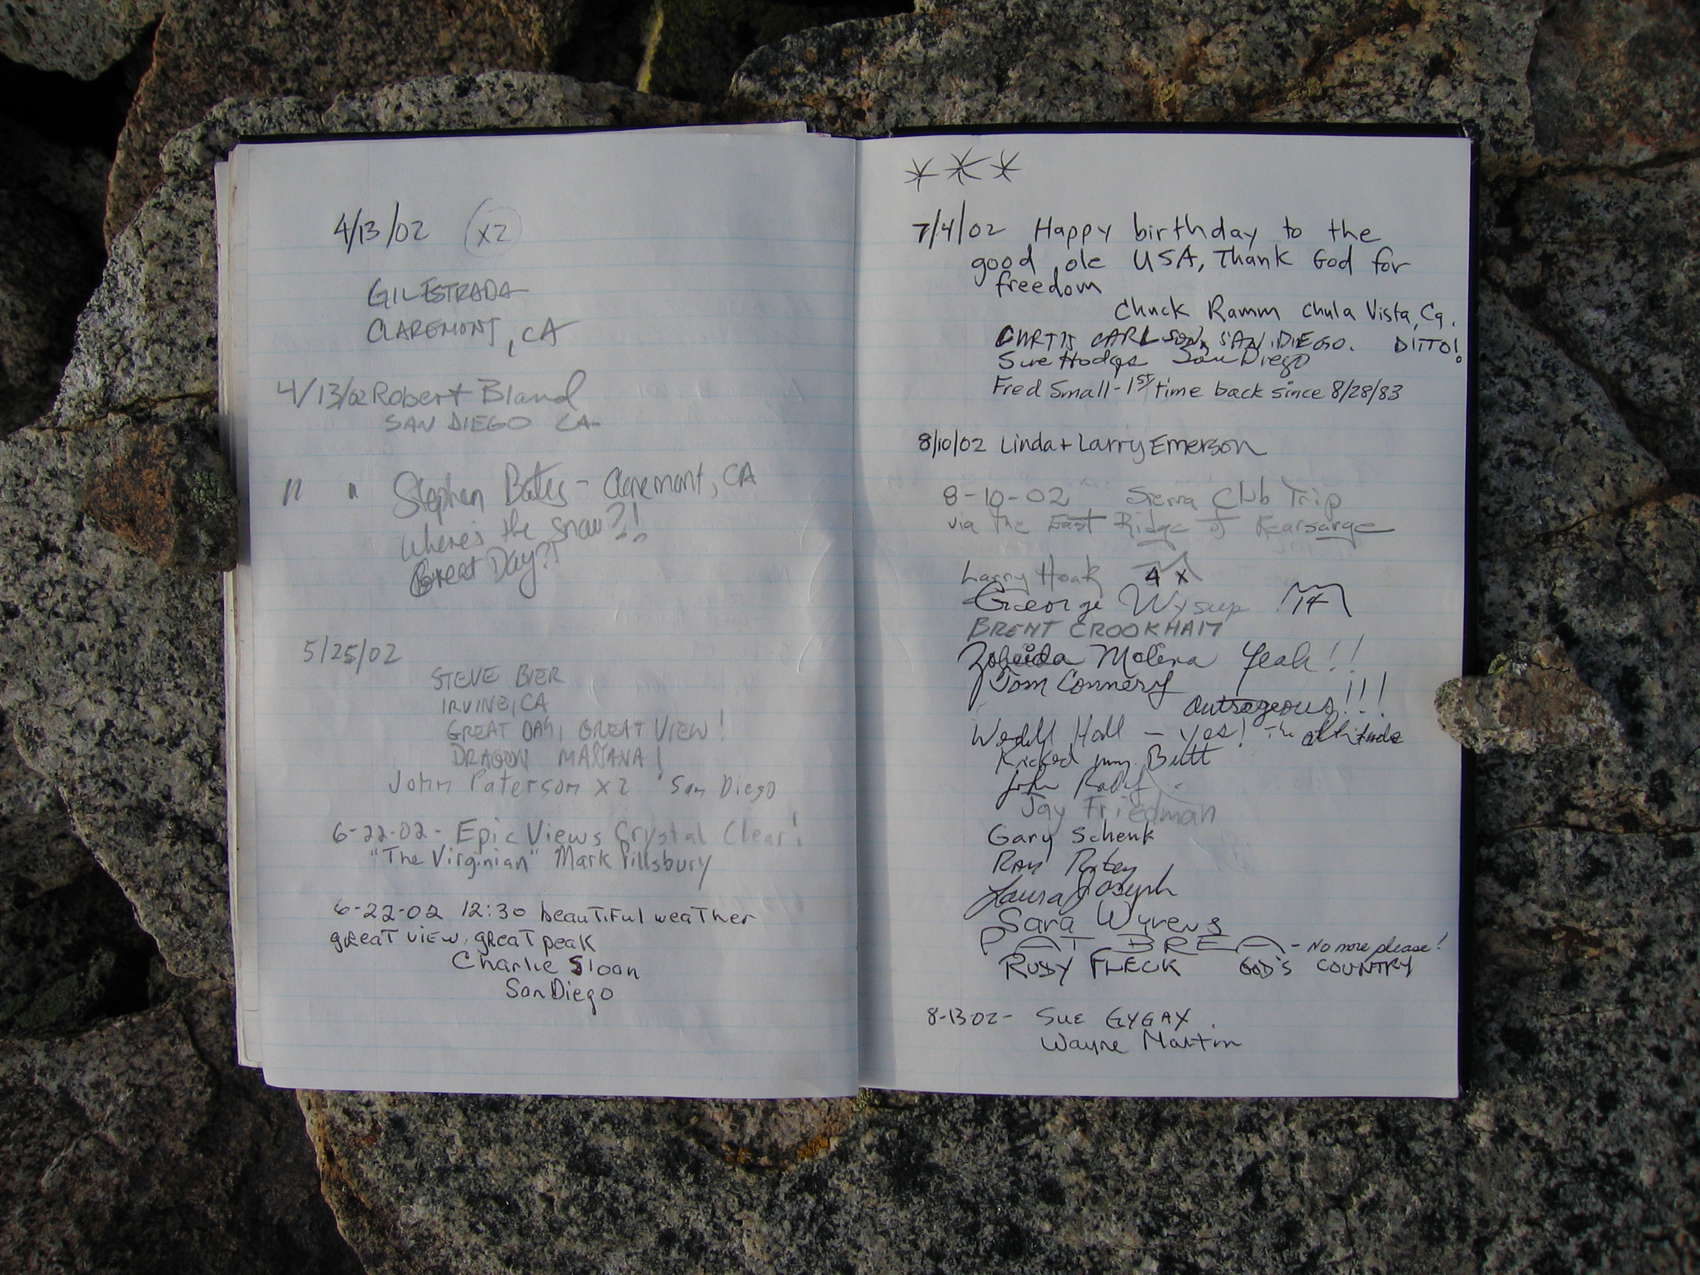 4/13/02 x2
GIL ESTRADA
CLAREMONT, CA
4/13/02 Robert Bland
SAN DIEGO CA
" " Stephen Bates - Claremont, CA
Where's the snow?!!
Great Day?!
5/25/02
STEVE BIER
IRVINE, CA
GREAT DAY, GREAT VIEW!
DRAGON MAÑANA!
John Paterson x2 San Diego
6-22-02- Epic Views Crystal Clear!
"The Virginian" Mark Pillsbury
6-22-02 12:30 beautiful weather
great view, great peak
Charlie Sloan
San Diego
7/4/02 Happy birthday to the
good ole USA, Thank God for
freedom
Chuck Ramm Chula Vista, Ca.
CURTIS CARLSON, SAN DIEGO. DITTO!
Sue Hodges San Diego
Fred Small - 1st time back since 8/28/83
8/10/02 Linda + Larry Emerson
8-10-02 Sierra Club Trip
via the East Ridge of Kearsarge
Larry Hoak 4x
George Wysup 14
BRENT CROOKHAM
Zobeida Molina Yeah!!
Tom Connery
outrageous!!!
Hall - yes! The altitude
Kicked my Butt
John
Jay Friedman
Gary Schenk
Ray
Laura Joseph
Sara Wyrens
PAT BREA - No more please!
RUDY FLECK GOD'S COUNTRY
8-13-02- Sue GYGAX
Wayne Martin